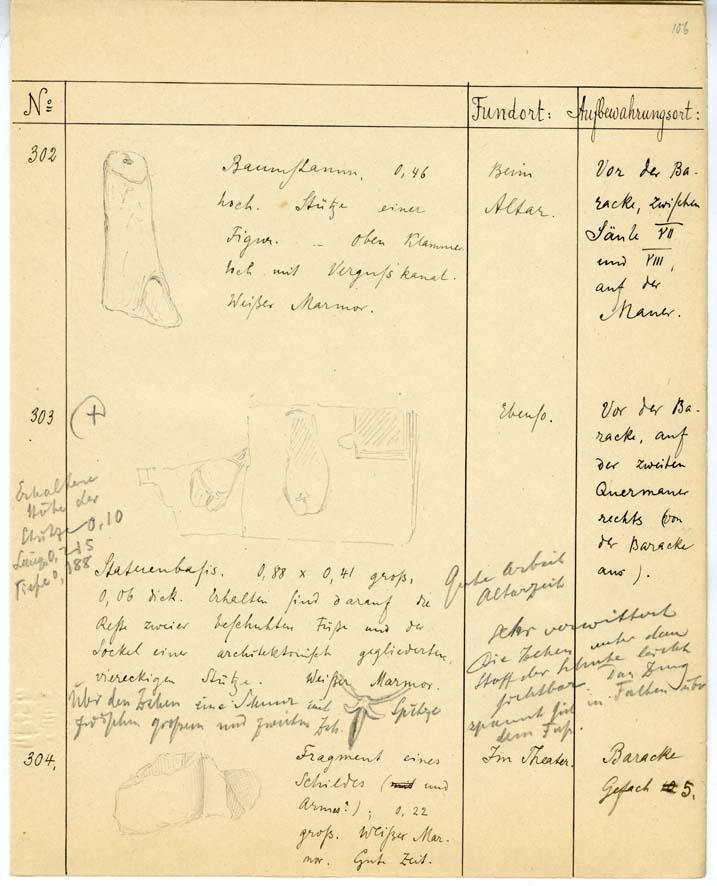 106
No
Fundort:
Aufbewahrungsort:
302
Baumstamm, 0,46
hoch. Stütze einer
Figur. – Oben Klammer-
loch mit Verguſskanal.
Weißer Marmor.
Beim
Altar.
Vor der Ba-
racke, zwischen
Säule VII
und VIII,
auf der
Mauer.
303
+
Erhaltene
Höhe der
Stütze 0,10
Länge 0,215
Tiefe 0,188
Statuenbasis. 0,88 x 0,41 groß,
0,06 dick. Erhalten sind darauf die
Reste zweier beschuhten Füße und der
Sockel einer architektonisch gegliederten,
viereckigen Stütze. Weißer Marmor.
Über den Zehen eine Schnur mit Spitze
zwischen großem und zweiten Zeh.
Ebenso.
Vor der Ba-
racke, auf
der zweiten
Quermauer
rechts (von
der Baracke
aus).
Gute Arbeit
Altarzeit
sehr verwittert
Die Zehen unter dem
Stoff der Schuhe leicht
sichtbar Das Zeug
spannt sich in Falten über
dem Fuß.
304.
Fragment eines
Schildes (mit und
Armes?); 0,22
groß. Weißer Mar-
mor. Gute Zeit.
Im Theater.
Baracke
Gefach 5.